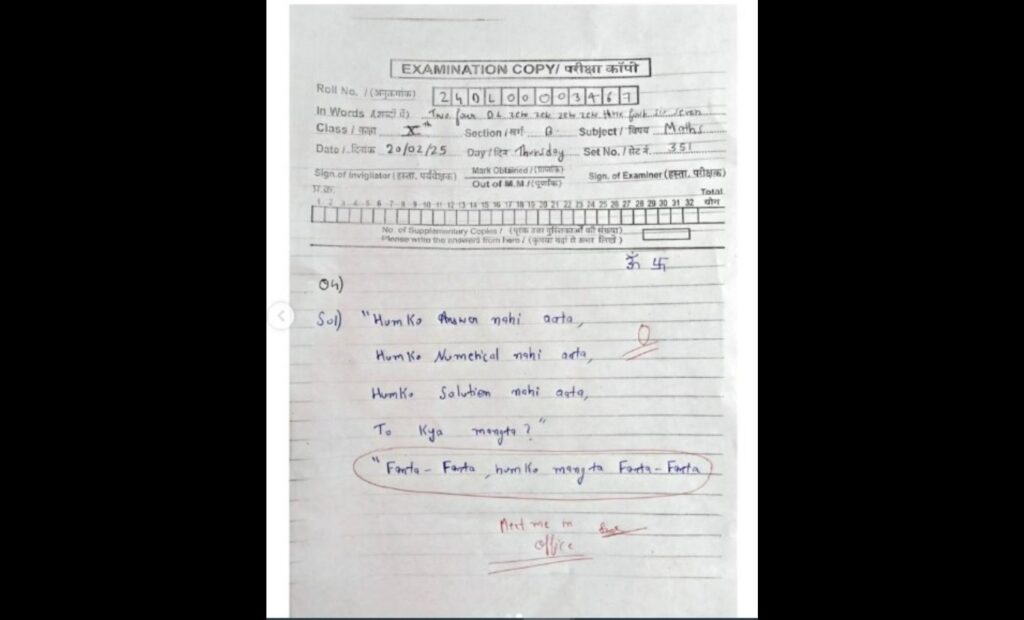 EXAMINATION COPY/ परीक्षा कॉपी
Roll No. / (अनुक्रमांक) 24DL00003467
In Words / (शब्दों में) Two four DL zero zero zero zero three four six seven
Class / कक्षा Xth Section / वर्ग B Subject / विषय Maths
Date / दिनांक 20/02/25 Day / दिन Thursday Set No. / सेट नं. 351
Sign. of Invigilator (हस्ता. पर्यवेक्षक) Mark Obtained / (प्राप्तांक) Sign. of Examiner (हस्ता. परीक्षक)
Out of M.M / (पूर्णांक)
प्र.क्र. Total
1 2 3 4 5 6 7 8 9 10 11 12 13 14 15 16 17 18 19 20 21 22 23 24 25 26 27 28 29 30 31 32 योग
No. of Supplementary Copies / (पूरक उत्तर पुस्तिकाओं की संख्या)
Please write the answers from here / (कृपया यहां से उत्तर लिखें)
ॐ 卐
04)
Sol) "Humko Answer nahi aata,
0
Humko Numerical nahi aata,
Humko Solution nahi aata,
To Kya mangta?"
"Fanta - Fanta, humko mangta Fanta - Fanta
Meet me in
office